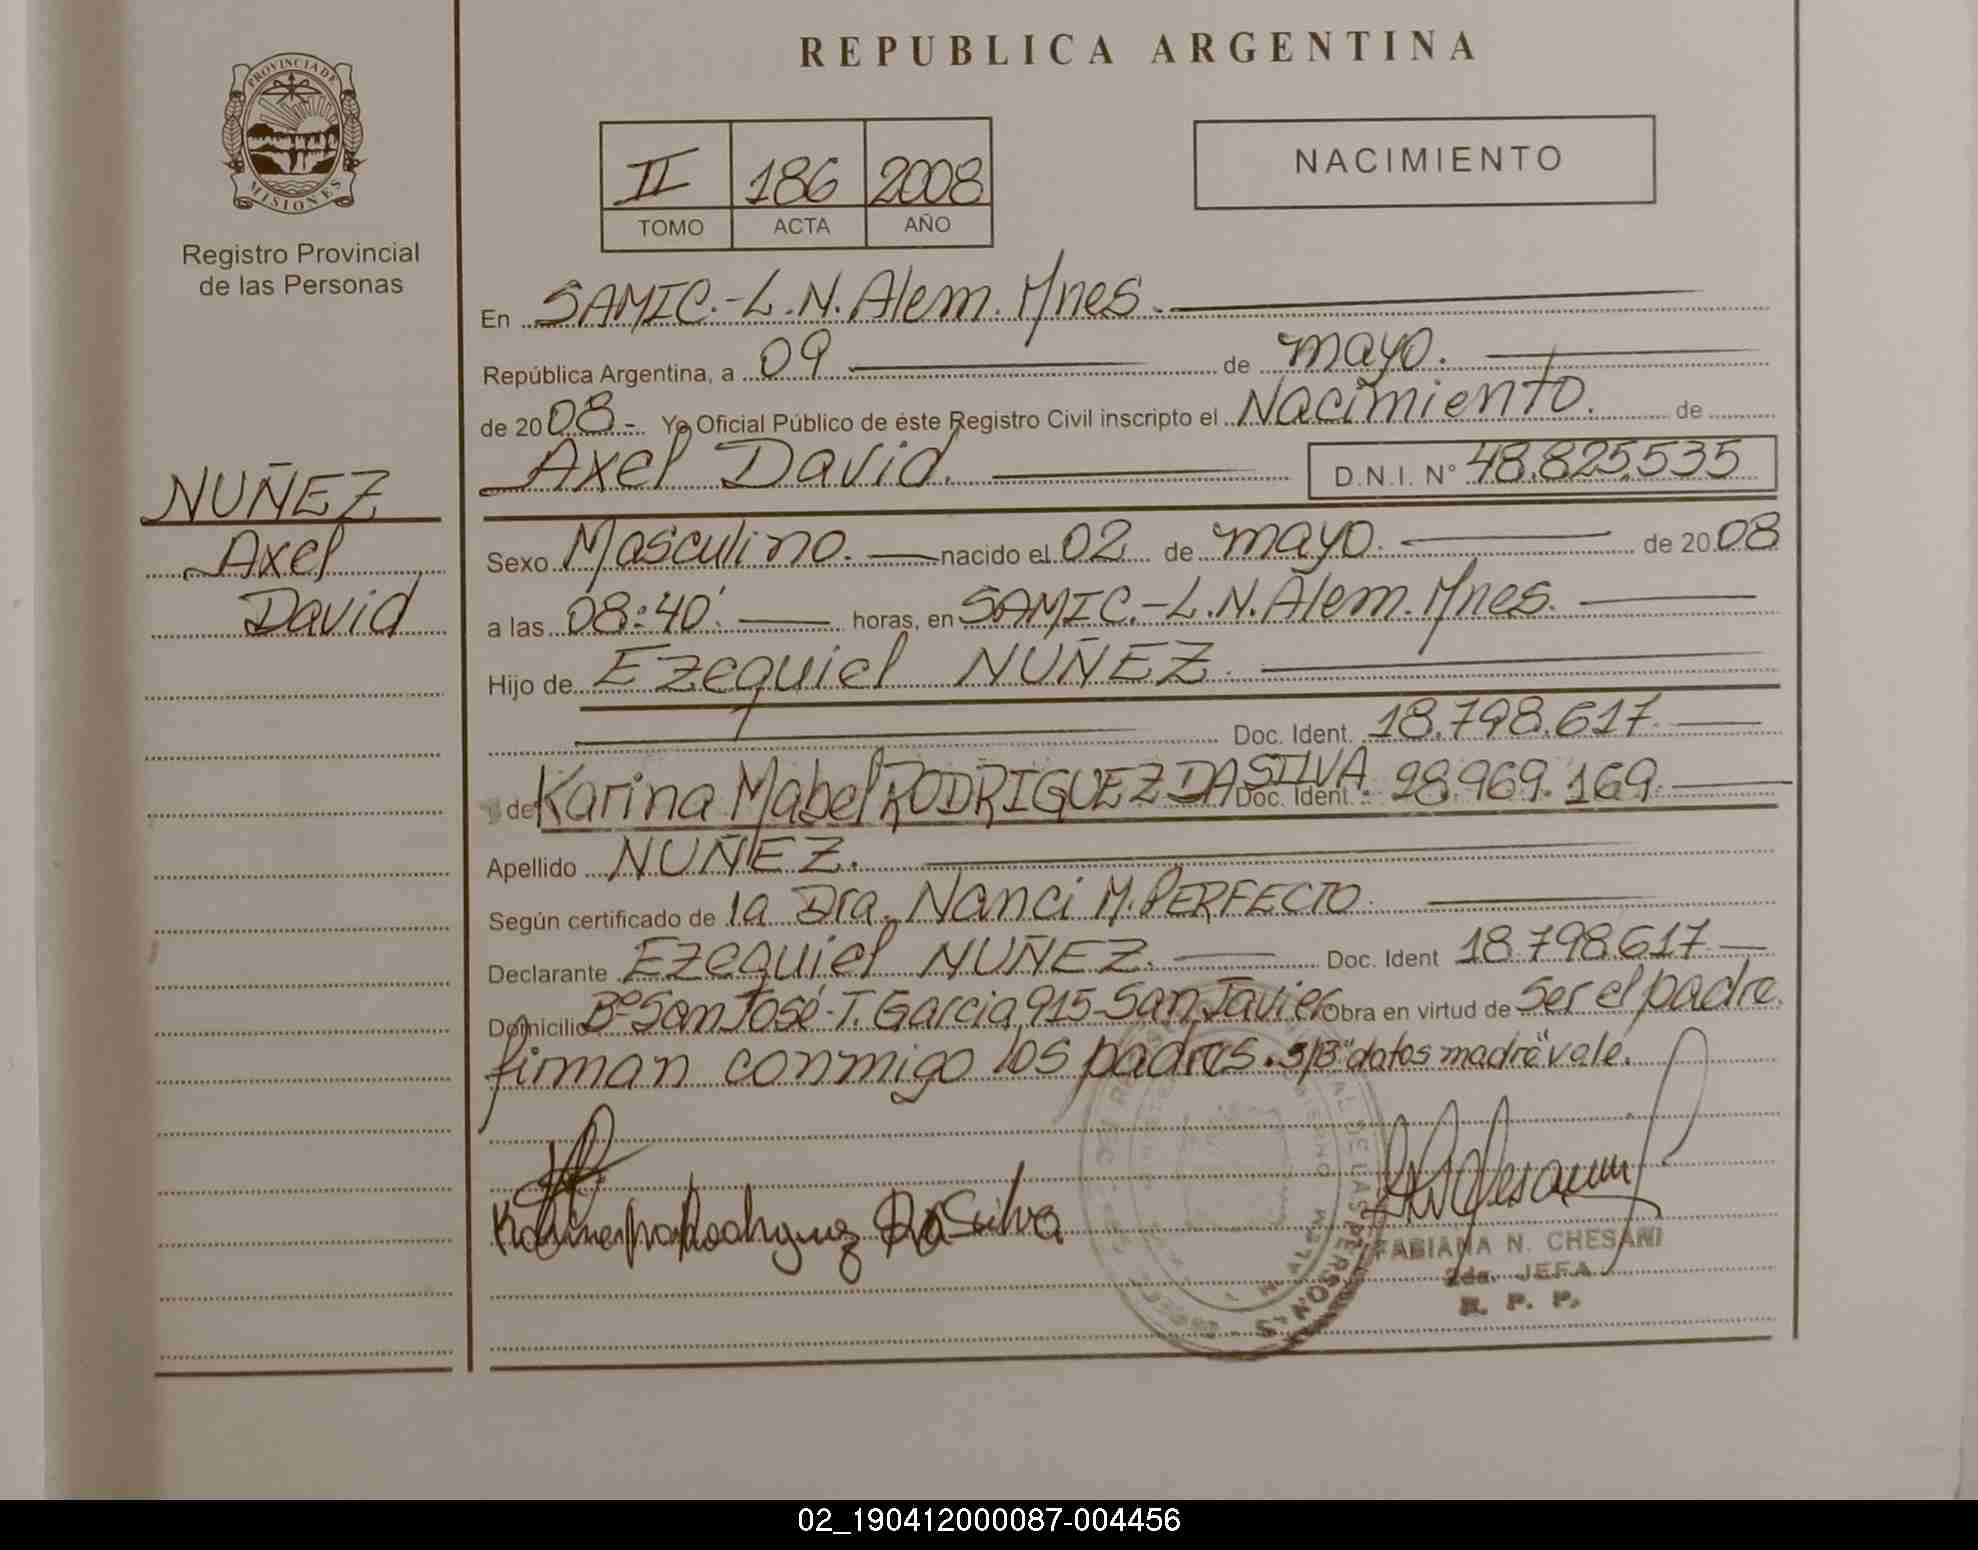 REPUBLICA ARGENTINA
PROVINCIA DE
MISIONES
Registro Provincial
de las Personas
II 186 2008
TOMO ACTA AÑO
NACIMIENTO
En SAMIC.-L.N.Alem.Mnes.
República Argentina, a 09 de mayo.
de 2008.- Yo Oficial Público de éste Registro Civil inscripto el Nacimiento. de
Axel David. D.N.I. N° 48.825.535
NUÑEZ
Axel
David
Sexo Masculino. nacido el 02 de mayo. de 2008
a las 08:40'. horas, en SAMIC.-L.N.Alem.Mnes.
Hijo de Ezequiel NUÑEZ.
Doc. Ident. 18.798.617.
de Karina Mabel RODRIGUEZ DA SILVA Doc. Ident.: 28.969.169.
Apellido NUÑEZ.
Según certificado de la Dra. Nanci M. PERFECTO.
Declarante Ezequiel NUÑEZ. Doc. Ident 18.798.617.
Domicilio B° San José-T. Garcia 915-San Javier Obra en virtud de Ser el padre.
firman conmigo los padres. s/B "datos madre" vale.
Rodriguez Da Silva
FABIANA N. CHESANI
2da. JEFA
R. P. P.
02_190412000087-004456